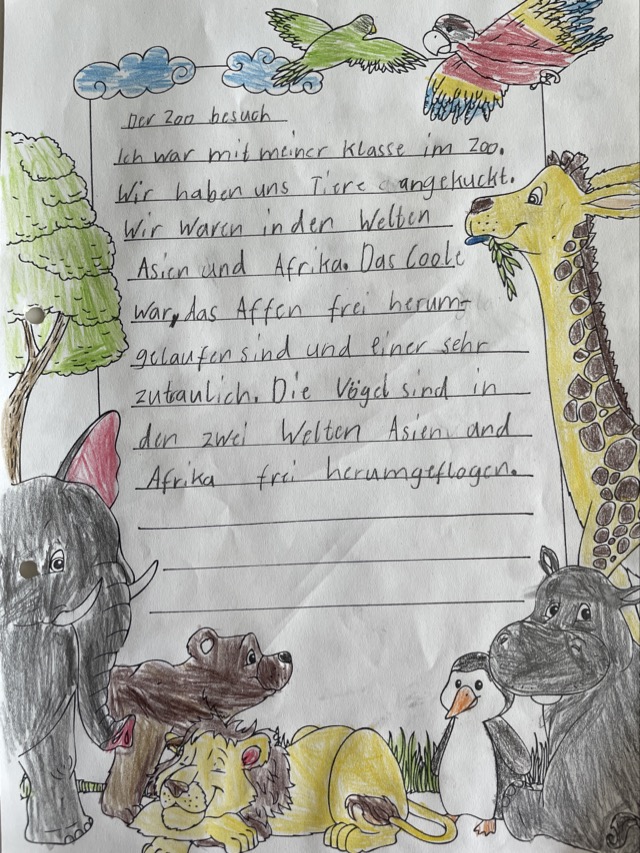 Der Zoo besuch
Ich war mit meiner Klasse im Zoo.
Wir haben uns Tiere angekuckt.
Wir waren in den Welten
Asien und Afrika. Das Coole
war, das Affen frei herum-
gelaufen sind und einer sehr
zutraulich. Die Vögel sind in
den zwei Welten Asien und
Afrika frei herumgeflogen.